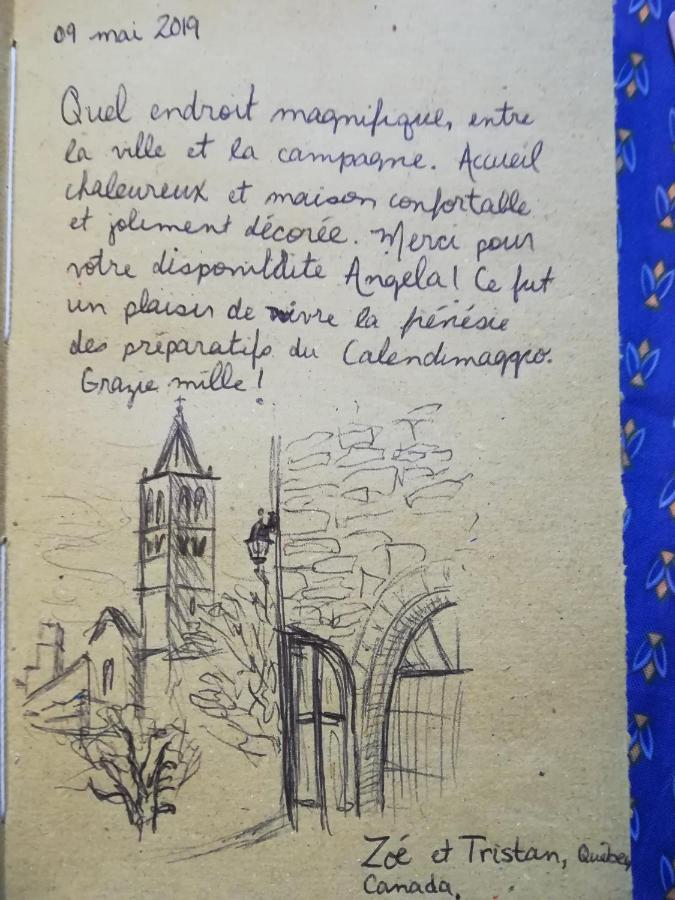 09 mai 2019
Quel endroit magnifique, entre
la ville et la campagne. Accueil
chaleureux et maison confortable
et joliment décorée. Merci pour
votre disponibilite Angela! Ce fut
un plaisir de vivre la frénésie
des préparatifs du Calendimaggio.
Grazie mille!
Zoé et Tristan, Québec,
Canada.